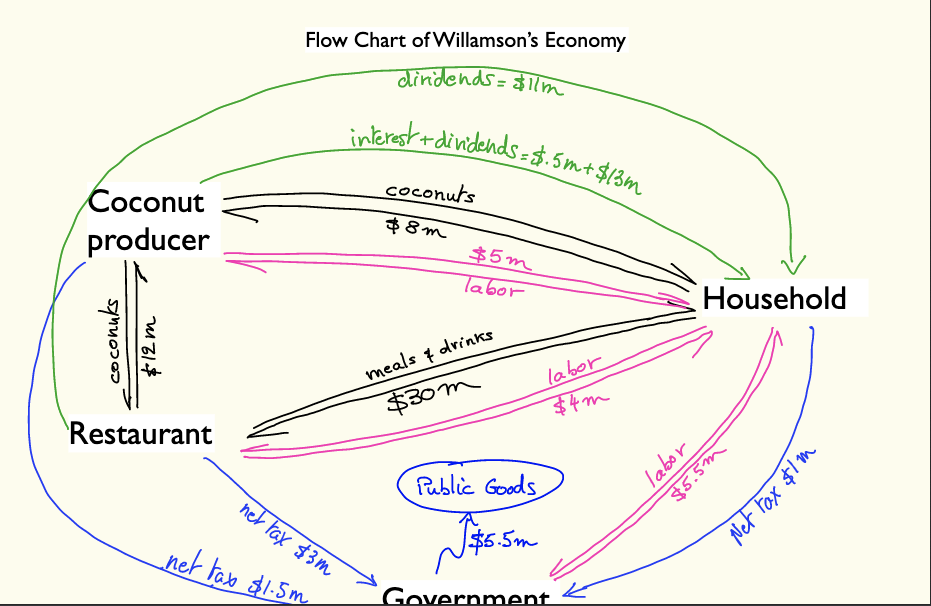 Flow Chart of Willamson's Economy
dividends = $11m
interest + dividends = $.5m + $13m
Coconut
producer
coconuts
$8m
$5m
labor
Household
coconuts
$12m
meals & drinks
$30m
labor
$4m
Restaurant
labor
$5.5m
Net tax $1m
Public Goods
$5.5m
net tax $3m
net tax $1.5m
Government